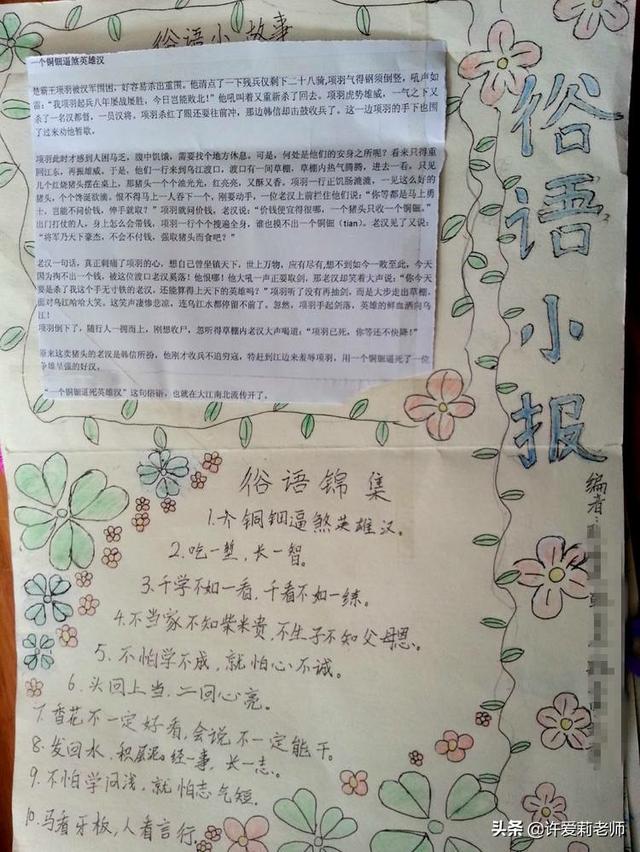 俗语小报
编者：
俗语小故事
一个铜钿逼煞英雄汉
是霸王项羽被汉军围困，好容易杀出重围。他清点了一下残兵仅剩下二十八骑，项羽气得钢须倒竖，吼声如
雷：“我项羽起兵八年屡战屡胜，今日岂能败北！”他吼叫着又重新杀了回去。项羽虎势雄威，一气之下又
杀了一名汉都督，一员汉将。项羽杀红了眼还要往前冲，那边韩信却击鼓收兵了。这一边项羽的手下也围
了过来劝他暂歇。
项羽此时才感到人困马乏，腹中饥饿，需要找个地方休息。可是，何处是他们的安身之所呢？看来只得重
回江东，再振雄威。于是，他们一行来到乌江渡口，渡口有一间草棚，草棚内热气腾腾，进去一看，只见
几个红烧猪头摆在桌上，那猪头一个个油光光，红亮亮，又酥又香，项羽一行正饥肠漉漉，一见这么好的
猪头，个个馋涎欲滴，恨不得马上一人吞下一个，刚要动手，一位老汉上前拦住他们说：“你等都是马上勇
士，岂能不问价钱，伸手就取？”项羽就问价钱，老汉说：“价钱便宜得很哪，一个猪头只收一个铜钿。”
出门打仗的人，身上怎么会带钱，项羽一行个个搜遍全身，谁也摸不出一个铜钿（tian）。老汉见了又说：
“将军乃天下豪杰，不会不付钱，强取猪头而食吧？”
老汉一句话，真正刺痛了项羽的心，想自己曾坐镇天下，世上万物，应有尽有，想不到如今一败至此，今天
因为掏不出一个钱，被这位渡口老汉奚落！他恨哪！他大吼一声正要取剑，那老汉却笑着大声说：“你今天
要是杀了我这个手无寸铁的老汉，还能算得上天下的英雄吗？”项羽听了没有再抽剑，而是大步走出草棚，
面对乌江哈哈大笑。这笑声凄惨悲凉，连乌江水都停留不前了。忽然，项羽手起剑落，英雄的鲜血洒向乌
江！
项羽倒下了，随行人一拥而上，刚想收尸，忽听得草棚内老汉大声喝道：“项羽已死，你等还不快降！”
原来这卖猪头的老汉是韩信所扮，他刚才收兵不追穷寇，特赶到江边来羞辱项羽，用一个铜钿逼死了一位
争雄呈强的好汉。
“一个铜钿逼死英雄汉”这句俗语，也就在大江南北流传开了。
俗语锦集
1.个铜钿逼煞英雄汉。
2.吃一堑，长一智。
3.千学不如一看，千看不如一练。
4.不当家不知柴米贵，不生子不知父母恩。
5.不怕学不成，就怕心不诚。
6.头回上当，二回心亮。
7.香花不一定好看，会说不一定能干。
8.发回水，积层泥；经一事，长一志。
9.不怕学问浅，就怕志气短。
10.马看牙板，人看言行。
头条 @许爱莉老师